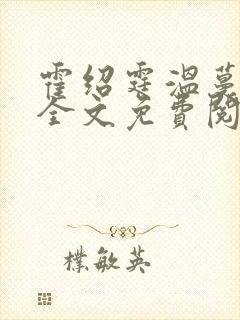 霍绍霆温蔓
全文免费阅
朴敏英